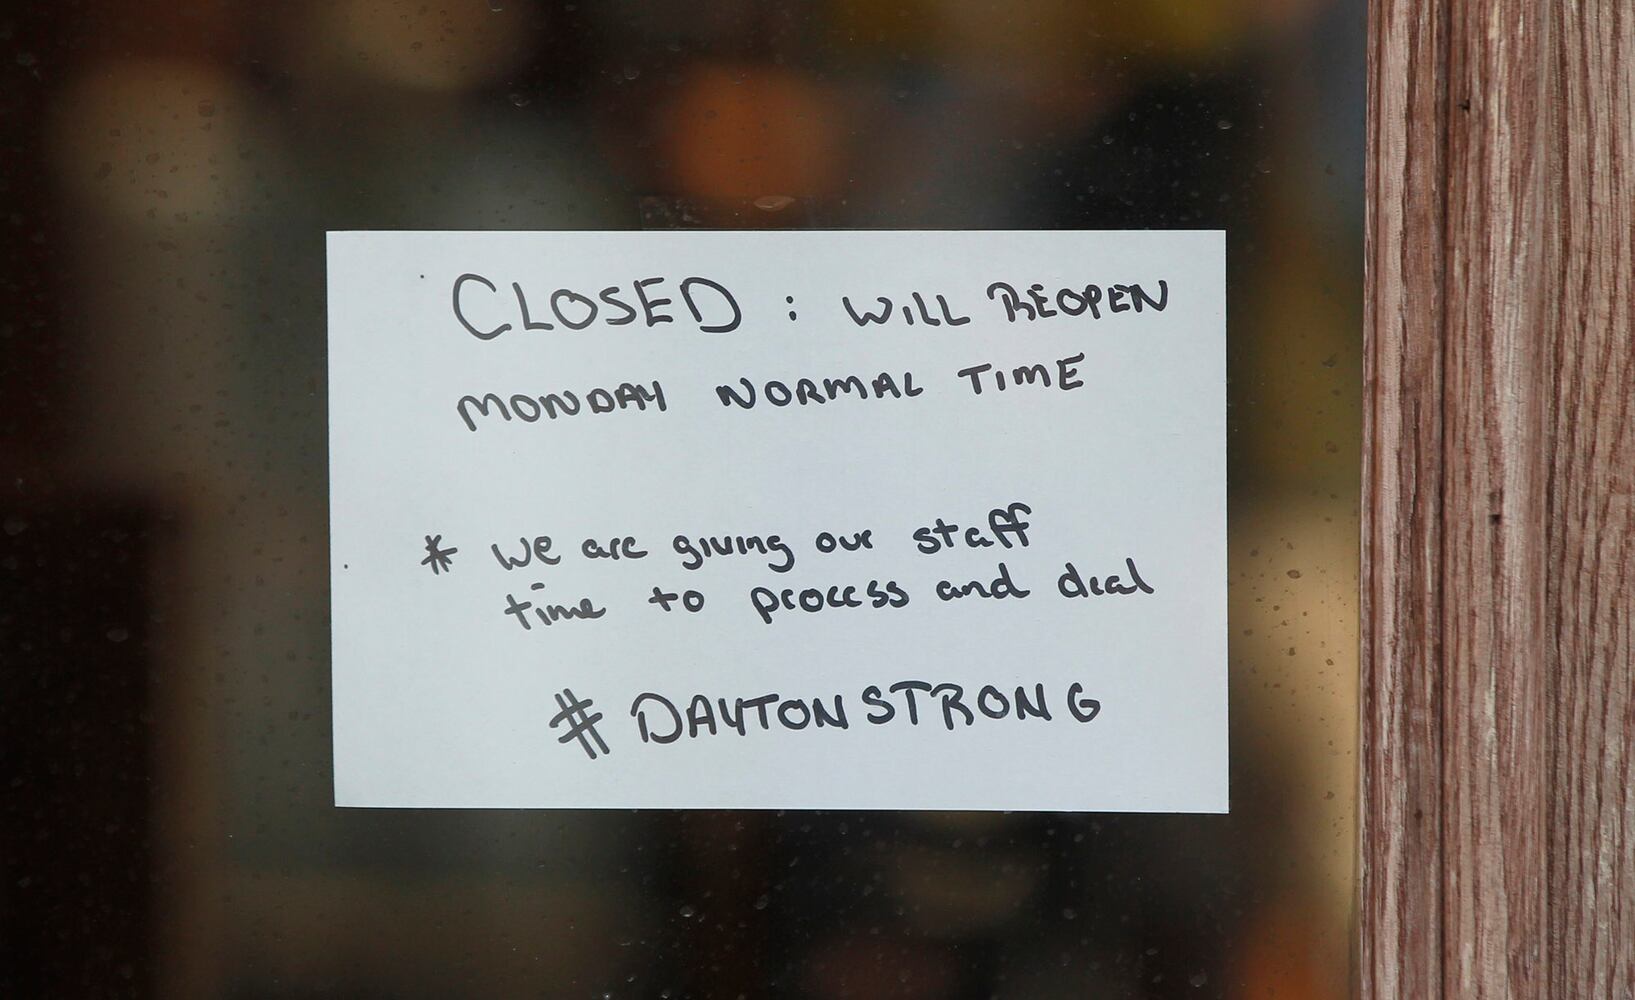 CLOSED : WILL REOPEN
MONDAY NORMAL TIME
* We are giving our staff
time to process and deal
# DAYTONSTRONG